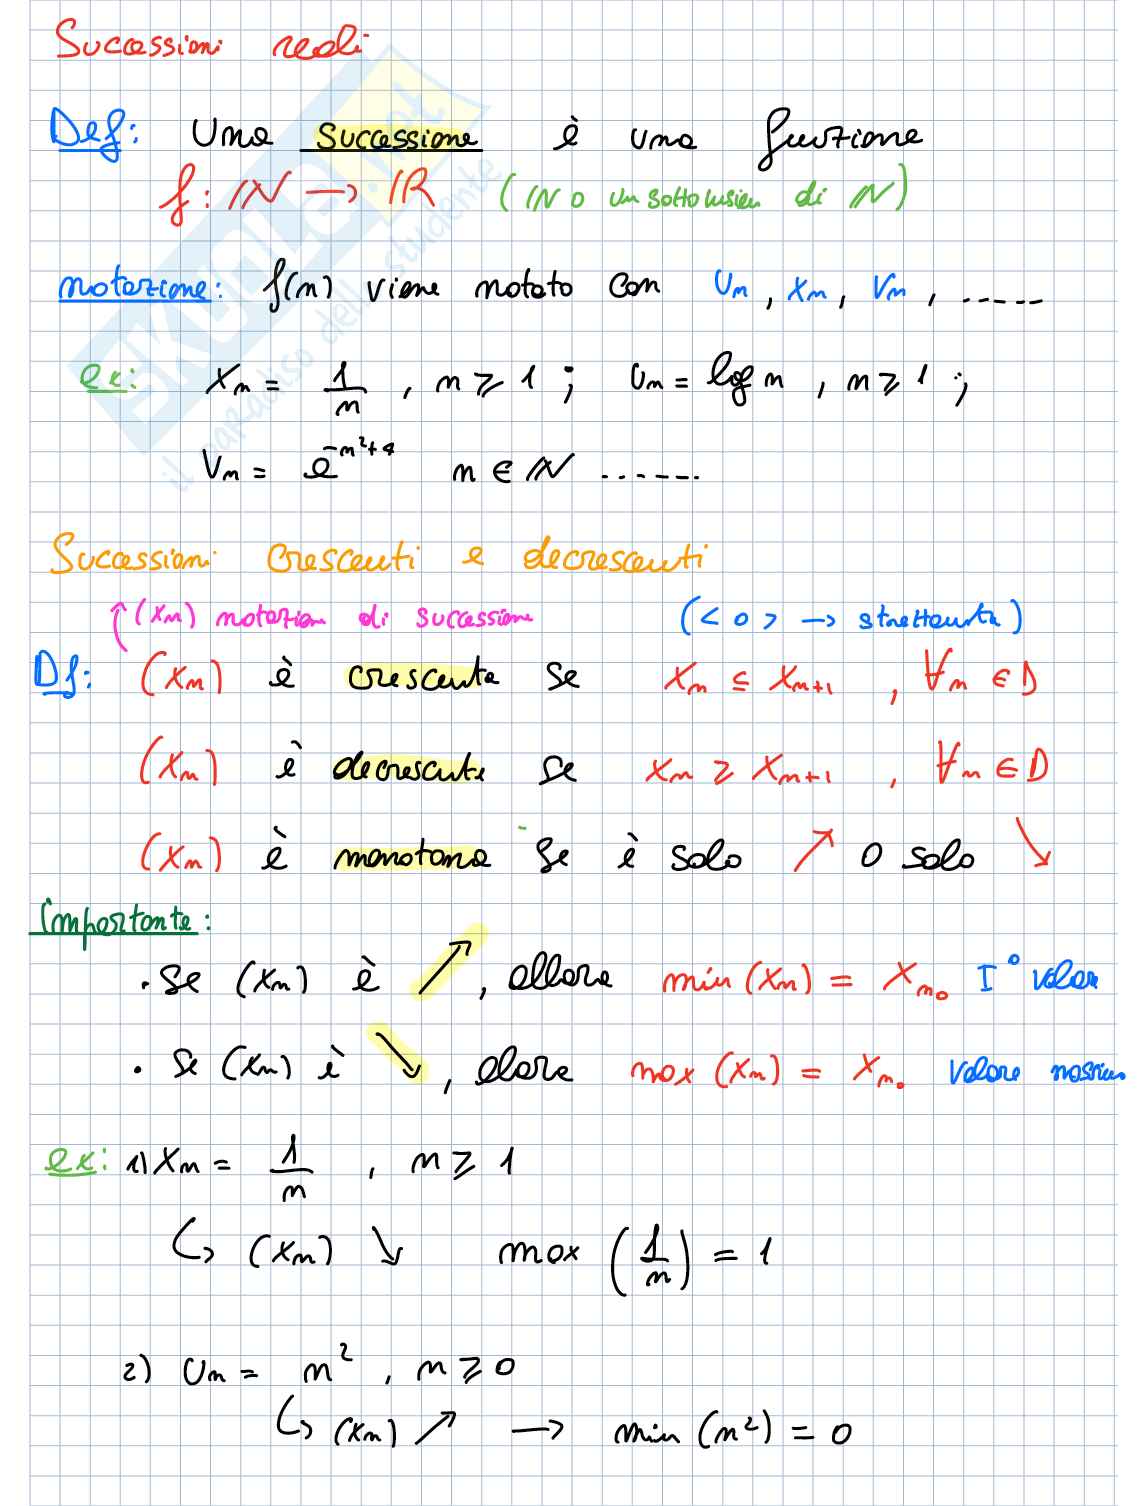 Successioni reali
Def: Una successione è una funzione
f: ℕ → ℝ (ℕ o un sottoinsiem di ℕ)
notazione: f(n) viene notato con Un, Xn, Vn, ......
ex: Xn = 1/n, n ≥ 1; Un = log n, n ≥ 1;
Vn = e^(-n²+4) n ∈ ℕ ......
Successioni crescenti e decrescenti
↑(Xn) notazion di successione (< o > → strettamente)
Df: (Xn) è crescente se Xn ≤ Xn+1, ∀n ∈ D
(Xn) è decrescente se Xn ≥ Xn+1, ∀n ∈ D
(Xn) è monotona se è solo ↗ o solo ↘
importante:
· se (Xn) è ↗, allora min(Xn) = Xn₀ I° valore
· se (Xn) è ↘, allora max(Xn) = Xn₀ valore
ex: 1) Xn = 1/n, n ≥ 1
↪ (Xn) ↘ max(1/n) = 1
2) Un = n², n ≥ 0
↪ (Xn) ↗ → min(n²) = 0
SKUOLA.net
il paradiso dello studente